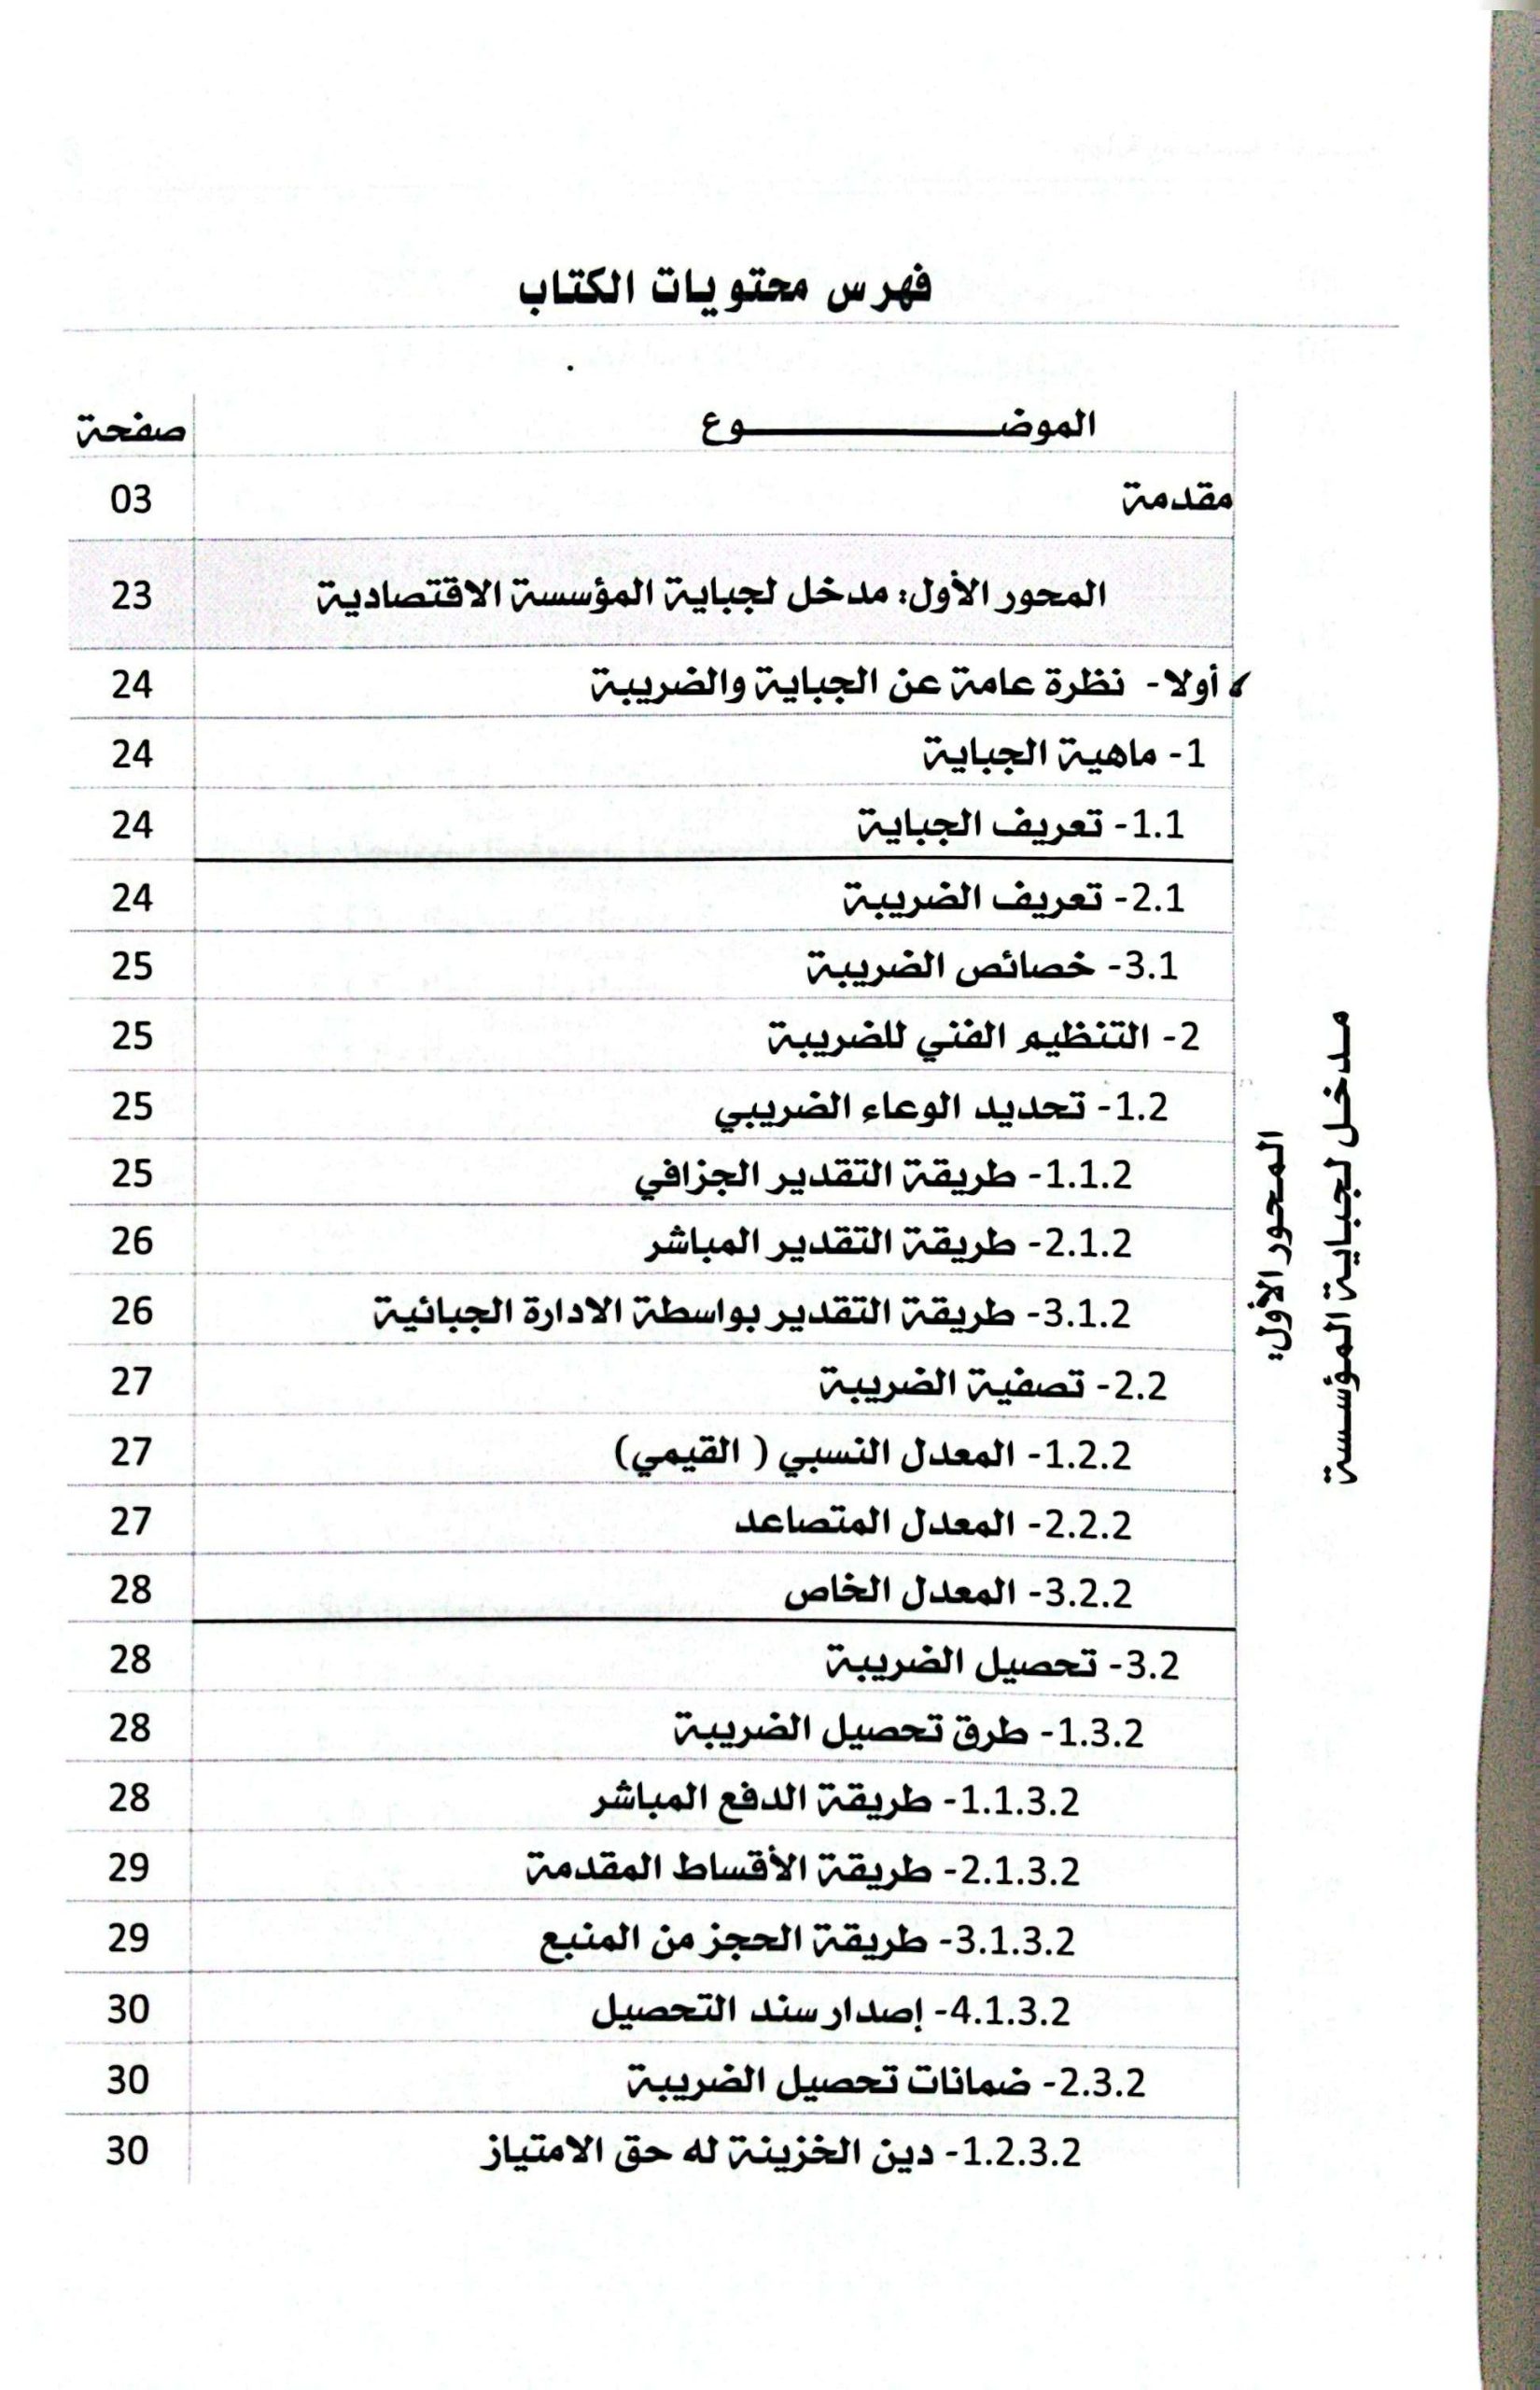 فهرس محتويات الكتاب
الموضـــــــــوع صفحة
مقدمة 03
المحور الأول: مدخل لجباية المؤسسة الاقتصادية 23
أولا- نظرة عامة عن الجباية والضريبة 24
1- ماهية الجباية 24
1.1- تعريف الجباية 24
2.1- تعريف الضريبة 24
3.1- خصائص الضريبة 25
2- التنظيم الفني للضريبة 25
1.2- تحديد الوعاء الضريبي 25
1.1.2- طريقة التقدير الجزافي 25
2.1.2- طريقة التقدير المباشر 26
3.1.2- طريقة التقدير بواسطة الادارة الجبائية 26
2.2- تصفية الضريبة 27
1.2.2- المعدل النسبي ( القيمي) 27
2.2.2- المعدل المتصاعد 27
3.2.2- المعدل الخاص 28
3.2- تحصيل الضريبة 28
1.3.2- طرق تحصيل الضريبة 28
1.1.3.2- طريقة الدفع المباشر 28
2.1.3.2- طريقة الأقساط المقدمة 29
3.1.3.2- طريقة الحجز من المنبع 29
4.1.3.2- إصدار سند التحصيل 30
2.3.2- ضمانات تحصيل الضريبة 30
1.2.3.2- دين الخزينة له حق الامتياز 30
المحور الأول:
مدخل لجباية المؤسسة